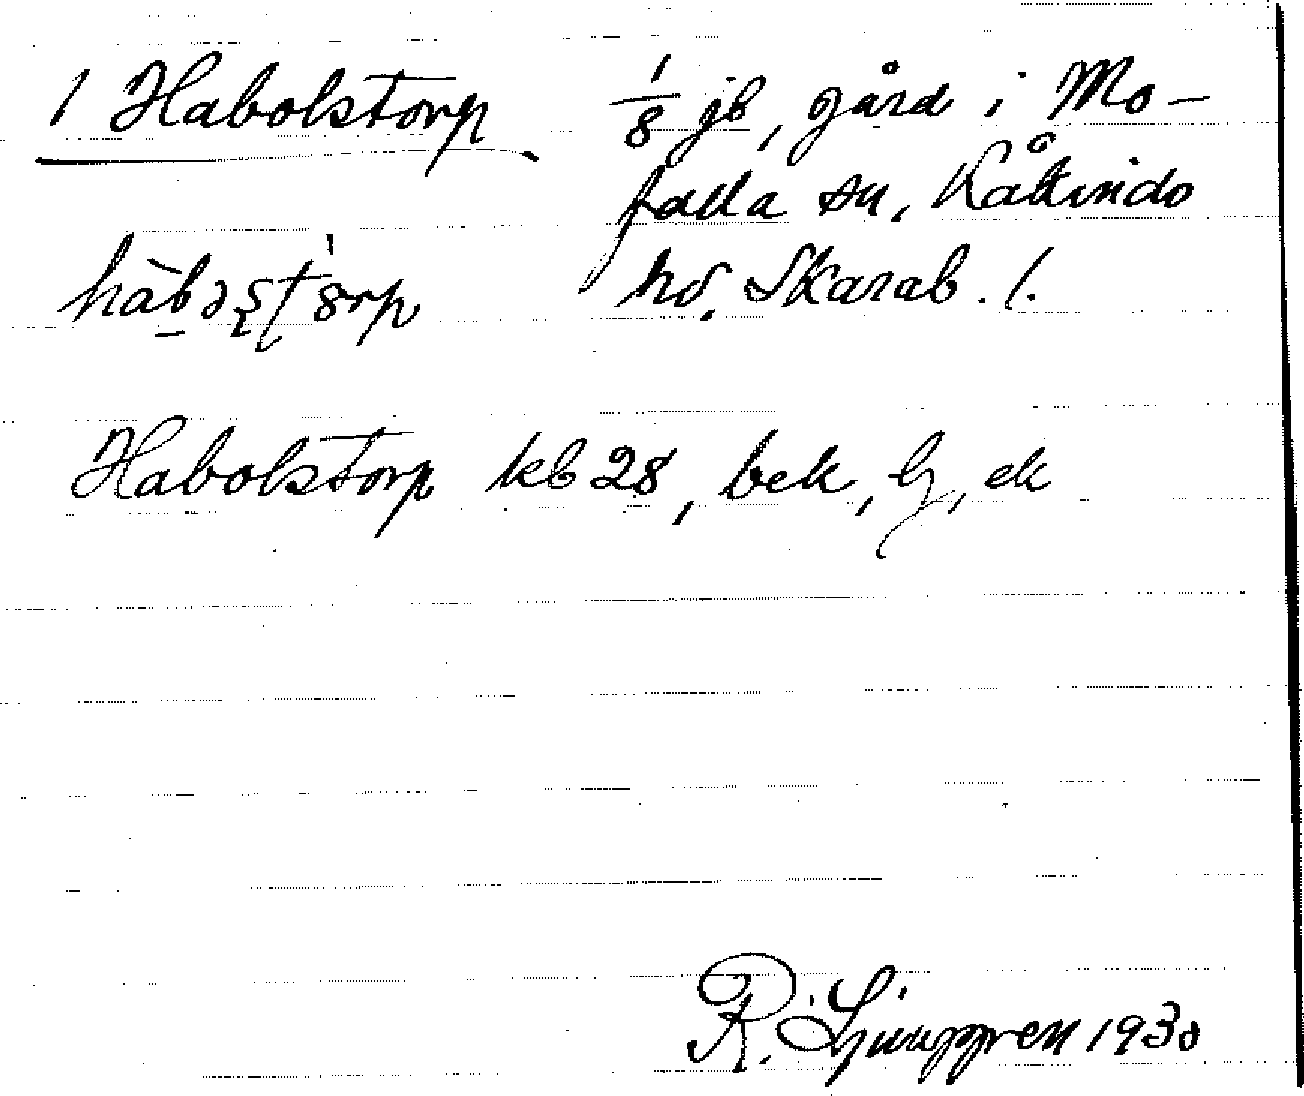 1 Habolstorp 1/8 jb, gård i Mo-
falla sn, Kåkinds
hd. Skarab. l.
Habolstorp kb 28, bek, lj, ek
R. Ljunggren 1930